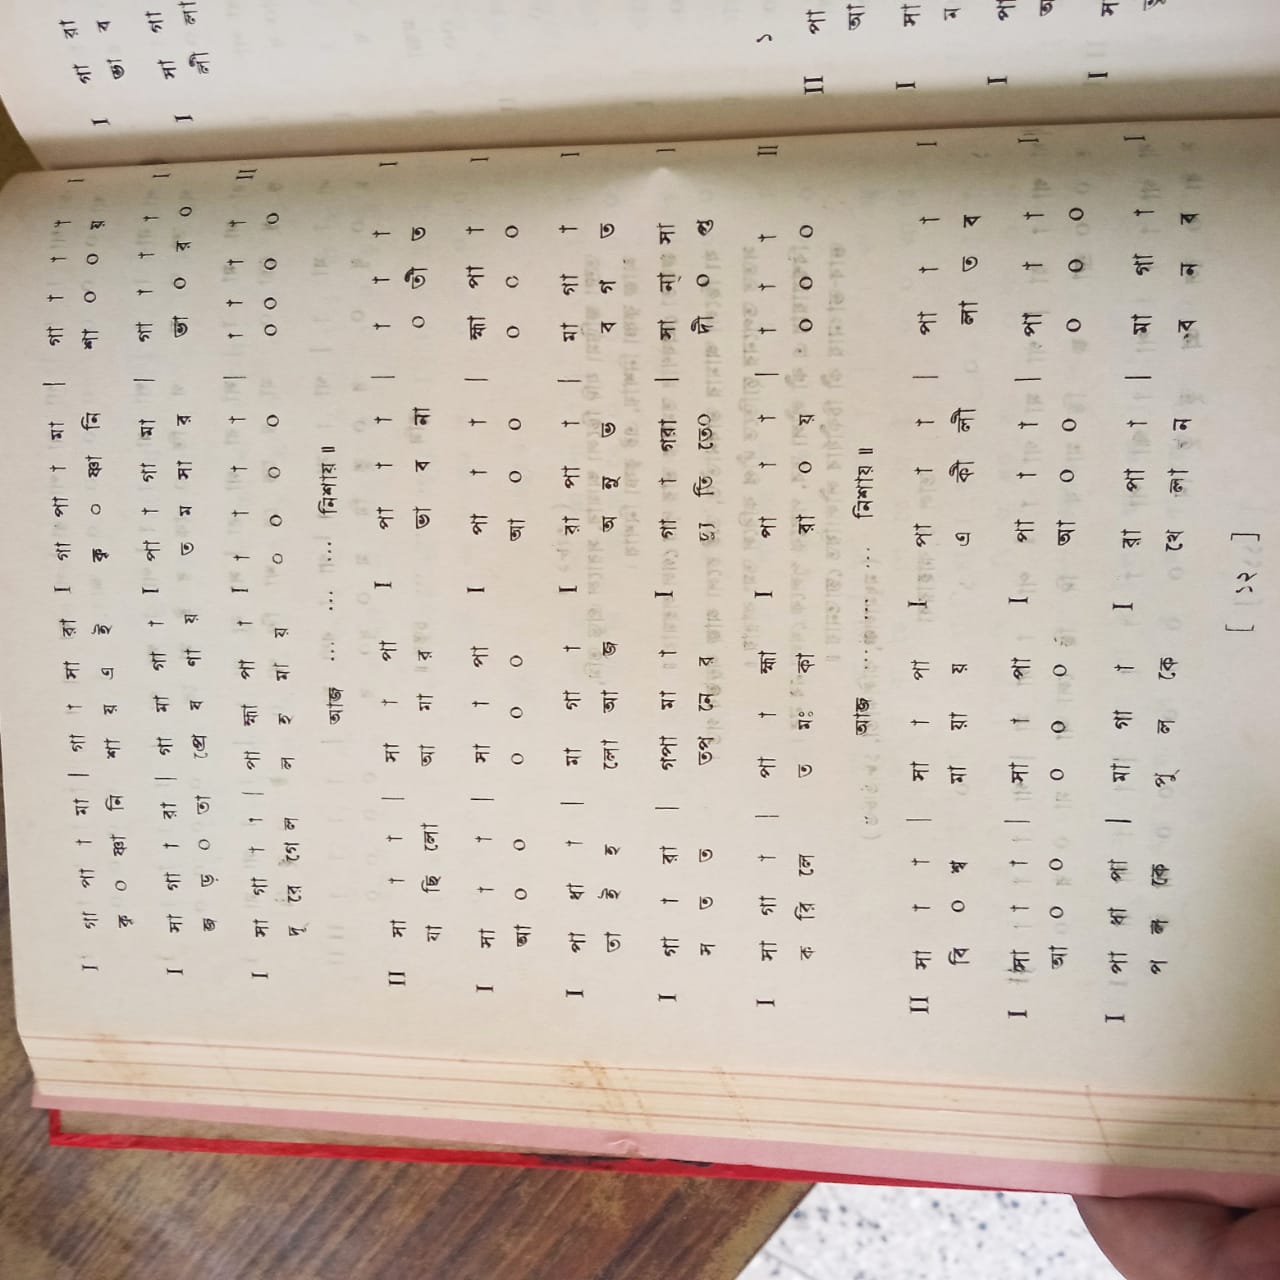 I গা পা া মা | গা া মা রা I গা পা া মা | গা া া া I
কৃ ০ ষ্ণা নি শা য় এ ই কৃ ০ ষ্ণা নি শা ০ ০ য়
I মা গা া রা | গা মা গা া I পা া গা মা | গা া া া I
জ ড় ০ তা প্রে ব ণা য় ত ম সা র ভা ০ র ০
I মা গা া া | পা হ্মা পা া I া া া া | া া া া II
দূ রে গে ল ল হ মা য় ০ ০ ০ ০ ০ ০ ০ ০
আজ ... ... ... নিশায়॥
II মা া া া | মা া পা I পা া া া | া া া া I
যা ছি লো আ মা র ভা ব না ০ তী ত
I মা া া া | মা া পা I পা া া া | হ্মা পা া I
আ ০ ০ ০ ০ ০ আ ০ ০ ০ ০ ০
I পা ধা া | মা গা া I রা পা া | মা গা া I
তা ই হ লো আ জ অ নু ভ ব গ ত
I গা া রা | গপা মা া I গা া গরা | সা ন্া সা I
ম ত ত তপ নে র দ্যু তি তে০ দী ০ প্ত
I মা গা া | পা া হ্মা I পা া া া | া া া II
ক রি লে ত মঃ কা রা ০ য় ০ ০ ০
আজ ... ... ... নিশায়॥
II মা া া া | মা া পা I পা া া া | পা া া I
বি ০ শ্ব মা য়া য় এ কী লী লা ত ব
I মা া া া | মা া পা I পা া া া | পা া া I
আ ০ ০ ০ ০ ০ আ ০ ০ ০ ০ ০
I পা ধা পা | মা গা া I রা পা া | মা গা া I
প ল কে পু ল কে খে লা ন ব ন ব
[ ১২ ]